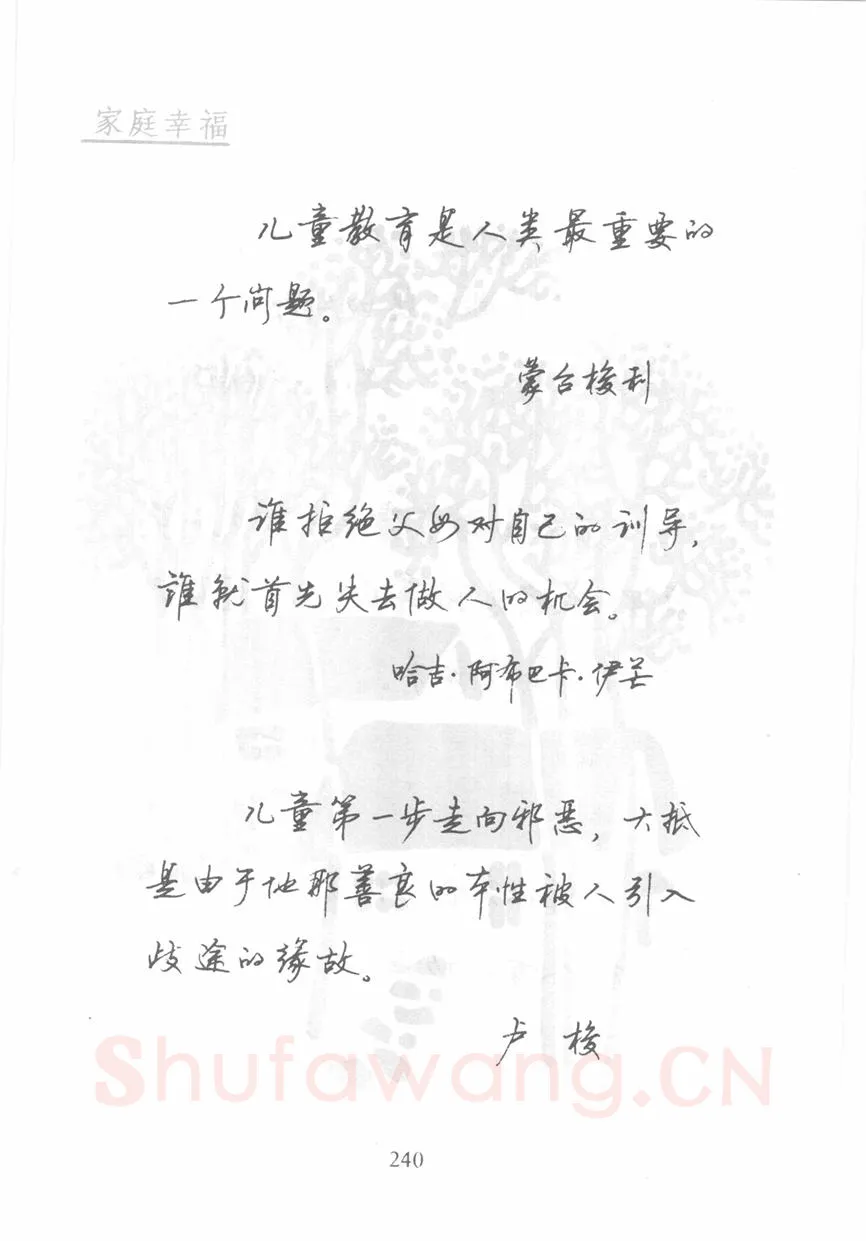 家庭幸福
儿童教育是人类最重要的
一个问题。
蒙台梭利
谁拒绝父母对自己的训导,
谁就首先失去做人的机会。
哈吉·阿布巴卡·伊芒
儿童第一步走向邪恶,大抵
是由于他那善良的本性被人引入
歧途的缘故。
卢 梭
Shufawang.CN
240